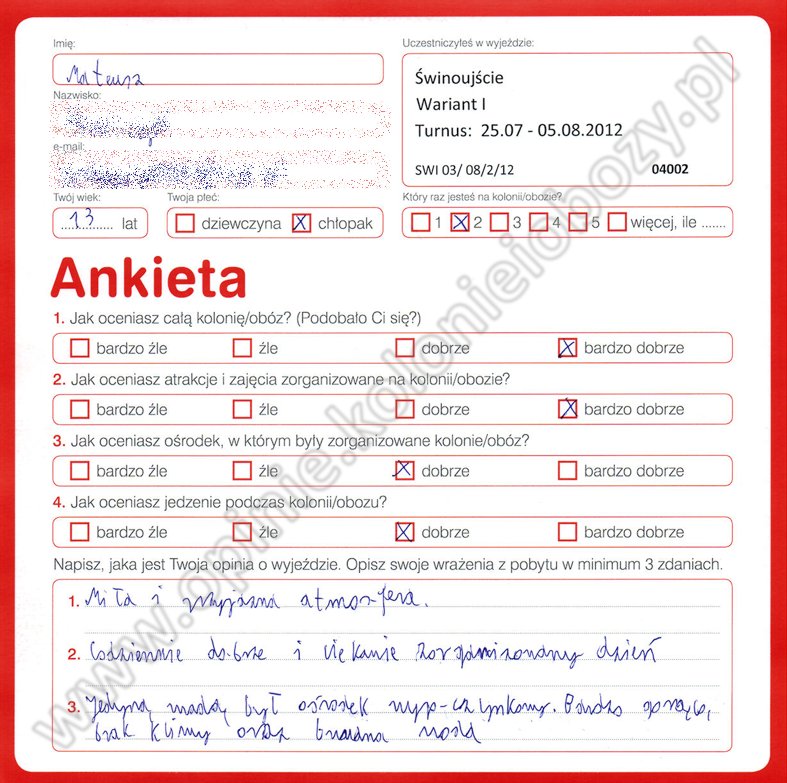 Imię:
Uczestniczyłeś w wyjeździe:
Mateusz
Świnoujście
Nazwisko:
Wariant I
Turnus: 25.07 - 05.08.2012
e-mail:
SWI 03/ 08/2/12 04002
Twój wiek: Twoja płeć: Który raz jesteś na kolonii/obozie?
13 lat dziewczyna X chłopak 1 X 2 3 4 5 więcej, ile .......
Ankieta
1. Jak oceniasz całą kolonię/obóz? (Podobało Ci się?)
bardzo źle źle dobrze X bardzo dobrze
2. Jak oceniasz atrakcje i zajęcia zorganizowane na kolonii/obozie?
bardzo źle źle dobrze X bardzo dobrze
3. Jak oceniasz ośrodek, w którym były zorganizowane kolonie/obóz?
bardzo źle źle X dobrze bardzo dobrze
4. Jak oceniasz jedzenie podczas kolonii/obozu?
bardzo źle źle X dobrze bardzo dobrze
Napisz, jaka jest Twoja opinia o wyjeździe. Opisz swoje wrażenia z pobytu w minimum 3 zdaniach.
1. Miła i przyjazna atmosfera.
2. Codziennie dobrze i ciekawie zorganizowany dzień
3. Jedyną wadą był ośrodek wypoczynkowy. Bardzo gorąco,
brak klimy oraz brudna woda
www.opinie.kolonieiobozy.pl